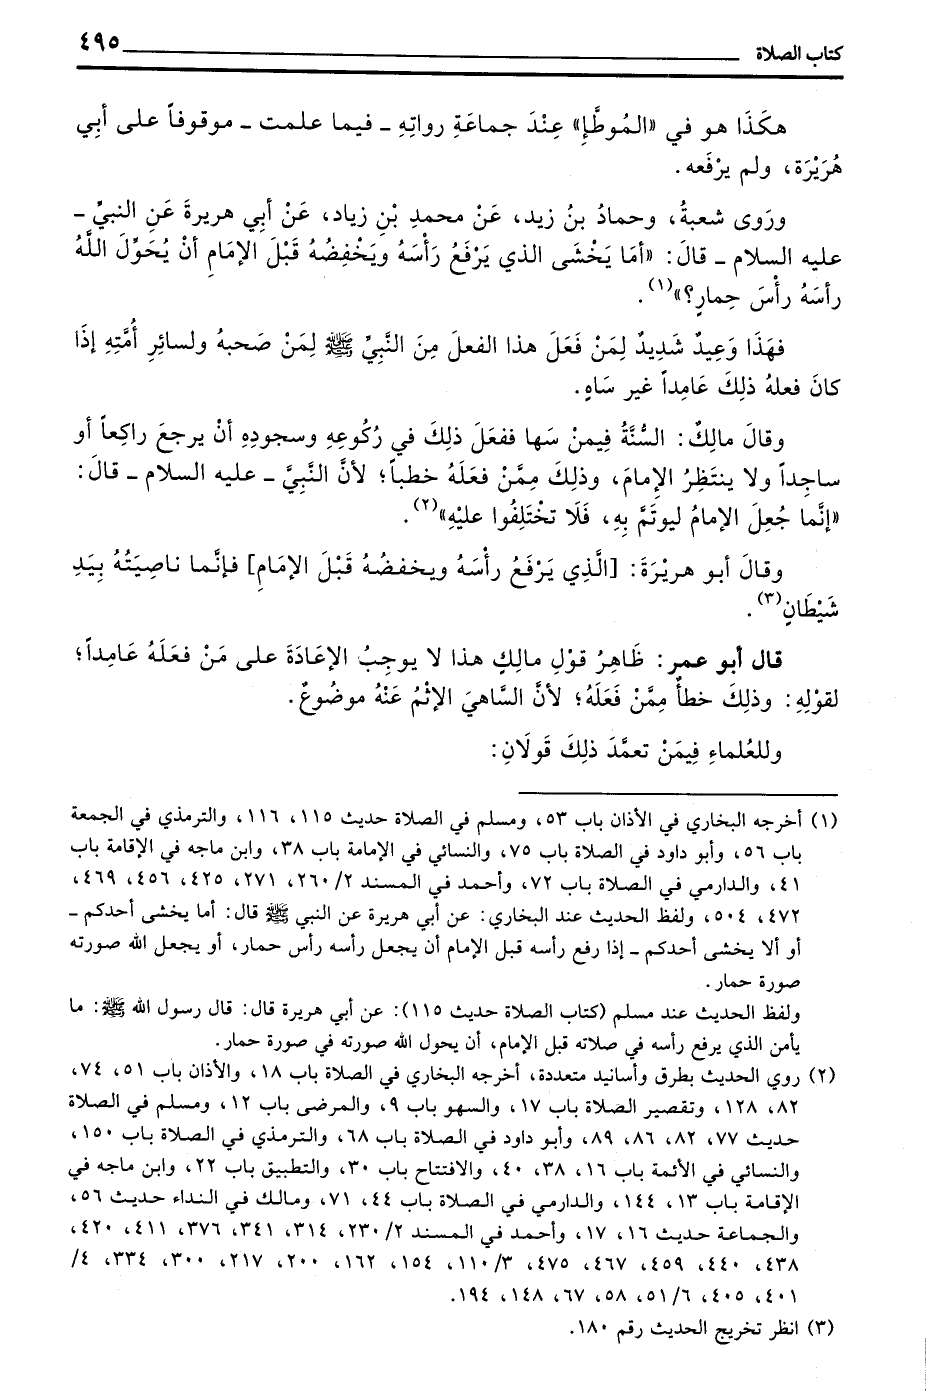 كتاب الصلاة ٤٩٥
هكَذَا هو في «المُوطَّإِ» عِنْدَ جماعَةِ رواتِهِ - فيما علمت - موقوفاً على أبي
هُرَيْرَة، ولم يرْفَعه.
ورَوى شعبةُ، وحمادُ بنُ زيد، عَنْ محمدِ بْنِ زياد، عَنْ أبي هريرةَ عَنِ النبيِّ -
عليه السلام - قالَ: «أمَا يَخْشَى الذي يَرْفَعُ رَأْسَهُ ويَخْفِضُهُ قَبْلَ الإمَامِ أنْ يُحَوِّلَ اللَّهُ
رأسَهُ رأْسَ حِمارٍ؟»(١).
فهَذَا وَعِيدٌ شَدِيدٌ لِمَنْ فَعَلَ هذا الفعلَ مِنَ النَّبِيِّ ﷺ لِمَنْ صَحبهُ ولسائِرِ أُمَّتِهِ إذَا
كانَ فعلهُ ذلِكَ عَامِداً غير سَاهٍ.
وقالَ مالِكٌ: السُّنَّةُ فِيمنْ سَها ففعَلَ ذلِكَ في رُكُوعِهِ وسجودِهِ أنْ يرجعَ راكِعاً أو
ساجِداً ولا ينتَظِرُ الإمامَ، وذلِكَ مِمَّنْ فعَلَهُ خطباً؛ لأنَّ النَّبِيَّ - عليه السلام - قالَ:
«إنَّما جُعِلَ الإمامُ ليوتَمَّ بِهِ، فَلَا تخْتَلِفُوا عليْهِ»(٢).
وقالَ أبو هريْرَةَ: [الَّذِي يَرْفَعُ رأْسَهُ ويخفضُهُ قَبْلَ الإمَامِ] فإنَّما ناصِيَتُهُ بِيَدِ
شَيْطَانٍ(٣).
قال أبو عمر: ظَاهِرُ قوْلِ مالِكٍ هذا لا يوجِبُ الإعَادَةَ على مَنْ فعَلَهُ عَامِداً؛
لقوْلِهِ: وذلِكَ خطأٌ مِمَّنْ فَعَلَهُ؛ لأنَّ السَّاهيَ الإثْمُ عَنْهُ موضُوعٌ.
وللعُلماءِ فِيمَنْ تعمَّدَ ذلِكَ قَولَانِ:
(١) أخرجه البخاري في الأذان باب ٥٣، ومسلم في الصلاة حديث ١١٥، ١١٦، والترمذي في الجمعة
باب ٥٦، وأبو داود في الصلاة باب ٧٥، والنسائي في الإمامة باب ٣٨، وابن ماجه في الإقامة باب
٤١، والدارمي في الصلاة باب ٧٢، وأحمد في المسند ٢/٢٦٠، ٢٧١، ٤٢٥، ٤٥٦، ٤٦٩،
٤٧٢، ٥٠٤، ولفظ الحديث عند البخاري: عن أبي هريرة عن النبي ﷺ قال: أما يخشى أحدكم -
أو ألا يخشى أحدكم - إذا رفع رأسه قبل الإمام أن يجعل رأسه رأس حمار، أو يجعل الله صورته
صورة حمار.
ولفظ الحديث عند مسلم (كتاب الصلاة حديث ١١٥): عن أبي هريرة قال: قال رسول الله ﷺ: ما
يأمن الذي يرفع رأسه في صلاته قبل الإمام، أن يحول الله صورته في صورة حمار.
(٢) روي الحديث بطرق وأسانيد متعددة، أخرجه البخاري في الصلاة باب ١٨، والأذان باب ٥١، ٧٤،
٨٢، ١٢٨، وتقصير الصلاة باب ١٧، والسهو باب ٩، والمرضى باب ١٢، ومسلم في الصلاة
حديث ٧٧، ٨٢، ٨٦، ٨٩، وأبو داود في الصلاة باب ٦٨، والترمذي في الصلاة باب ١٥٠،
والنسائي في الأئمة باب ١٦، ٣٨، ٤٠، والافتتاح باب ٣٠، والتطبيق باب ٢٢، وابن ماجه في
الإقامة باب ١٣، ١٤٤، والدارمي في الصلاة باب ٤٤، ٧١، ومالك في النداء حديث ٥٦،
والجماعة حديث ١٦، ١٧، وأحمد في المسند ٢/٢٣٠، ٣١٤، ٣٤١، ٣٧٦، ٤١١، ٤٢٠،
٤٣٨، ٤٤٠، ٤٥٩، ٤٦٧، ٤٧٥، ٣/١١٠، ١٥٤، ١٦٢، ٢٠٠، ٢١٧، ٣٠٠، ٣٣٤، ٤/
٤٠١، ٤٠٥، ٦/٥١، ٥٨، ٦٧، ١٤٨، ١٩٤.
(٣) انظر تخريج الحديث رقم ١٨٠.